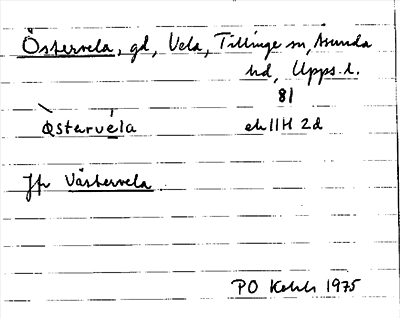 Östervela, gd, Vela, Tillinge sn, Åsunda
hd, Upps. l.
81
østervéla ek 11H 2d
Jfr Västervela
PO 1975